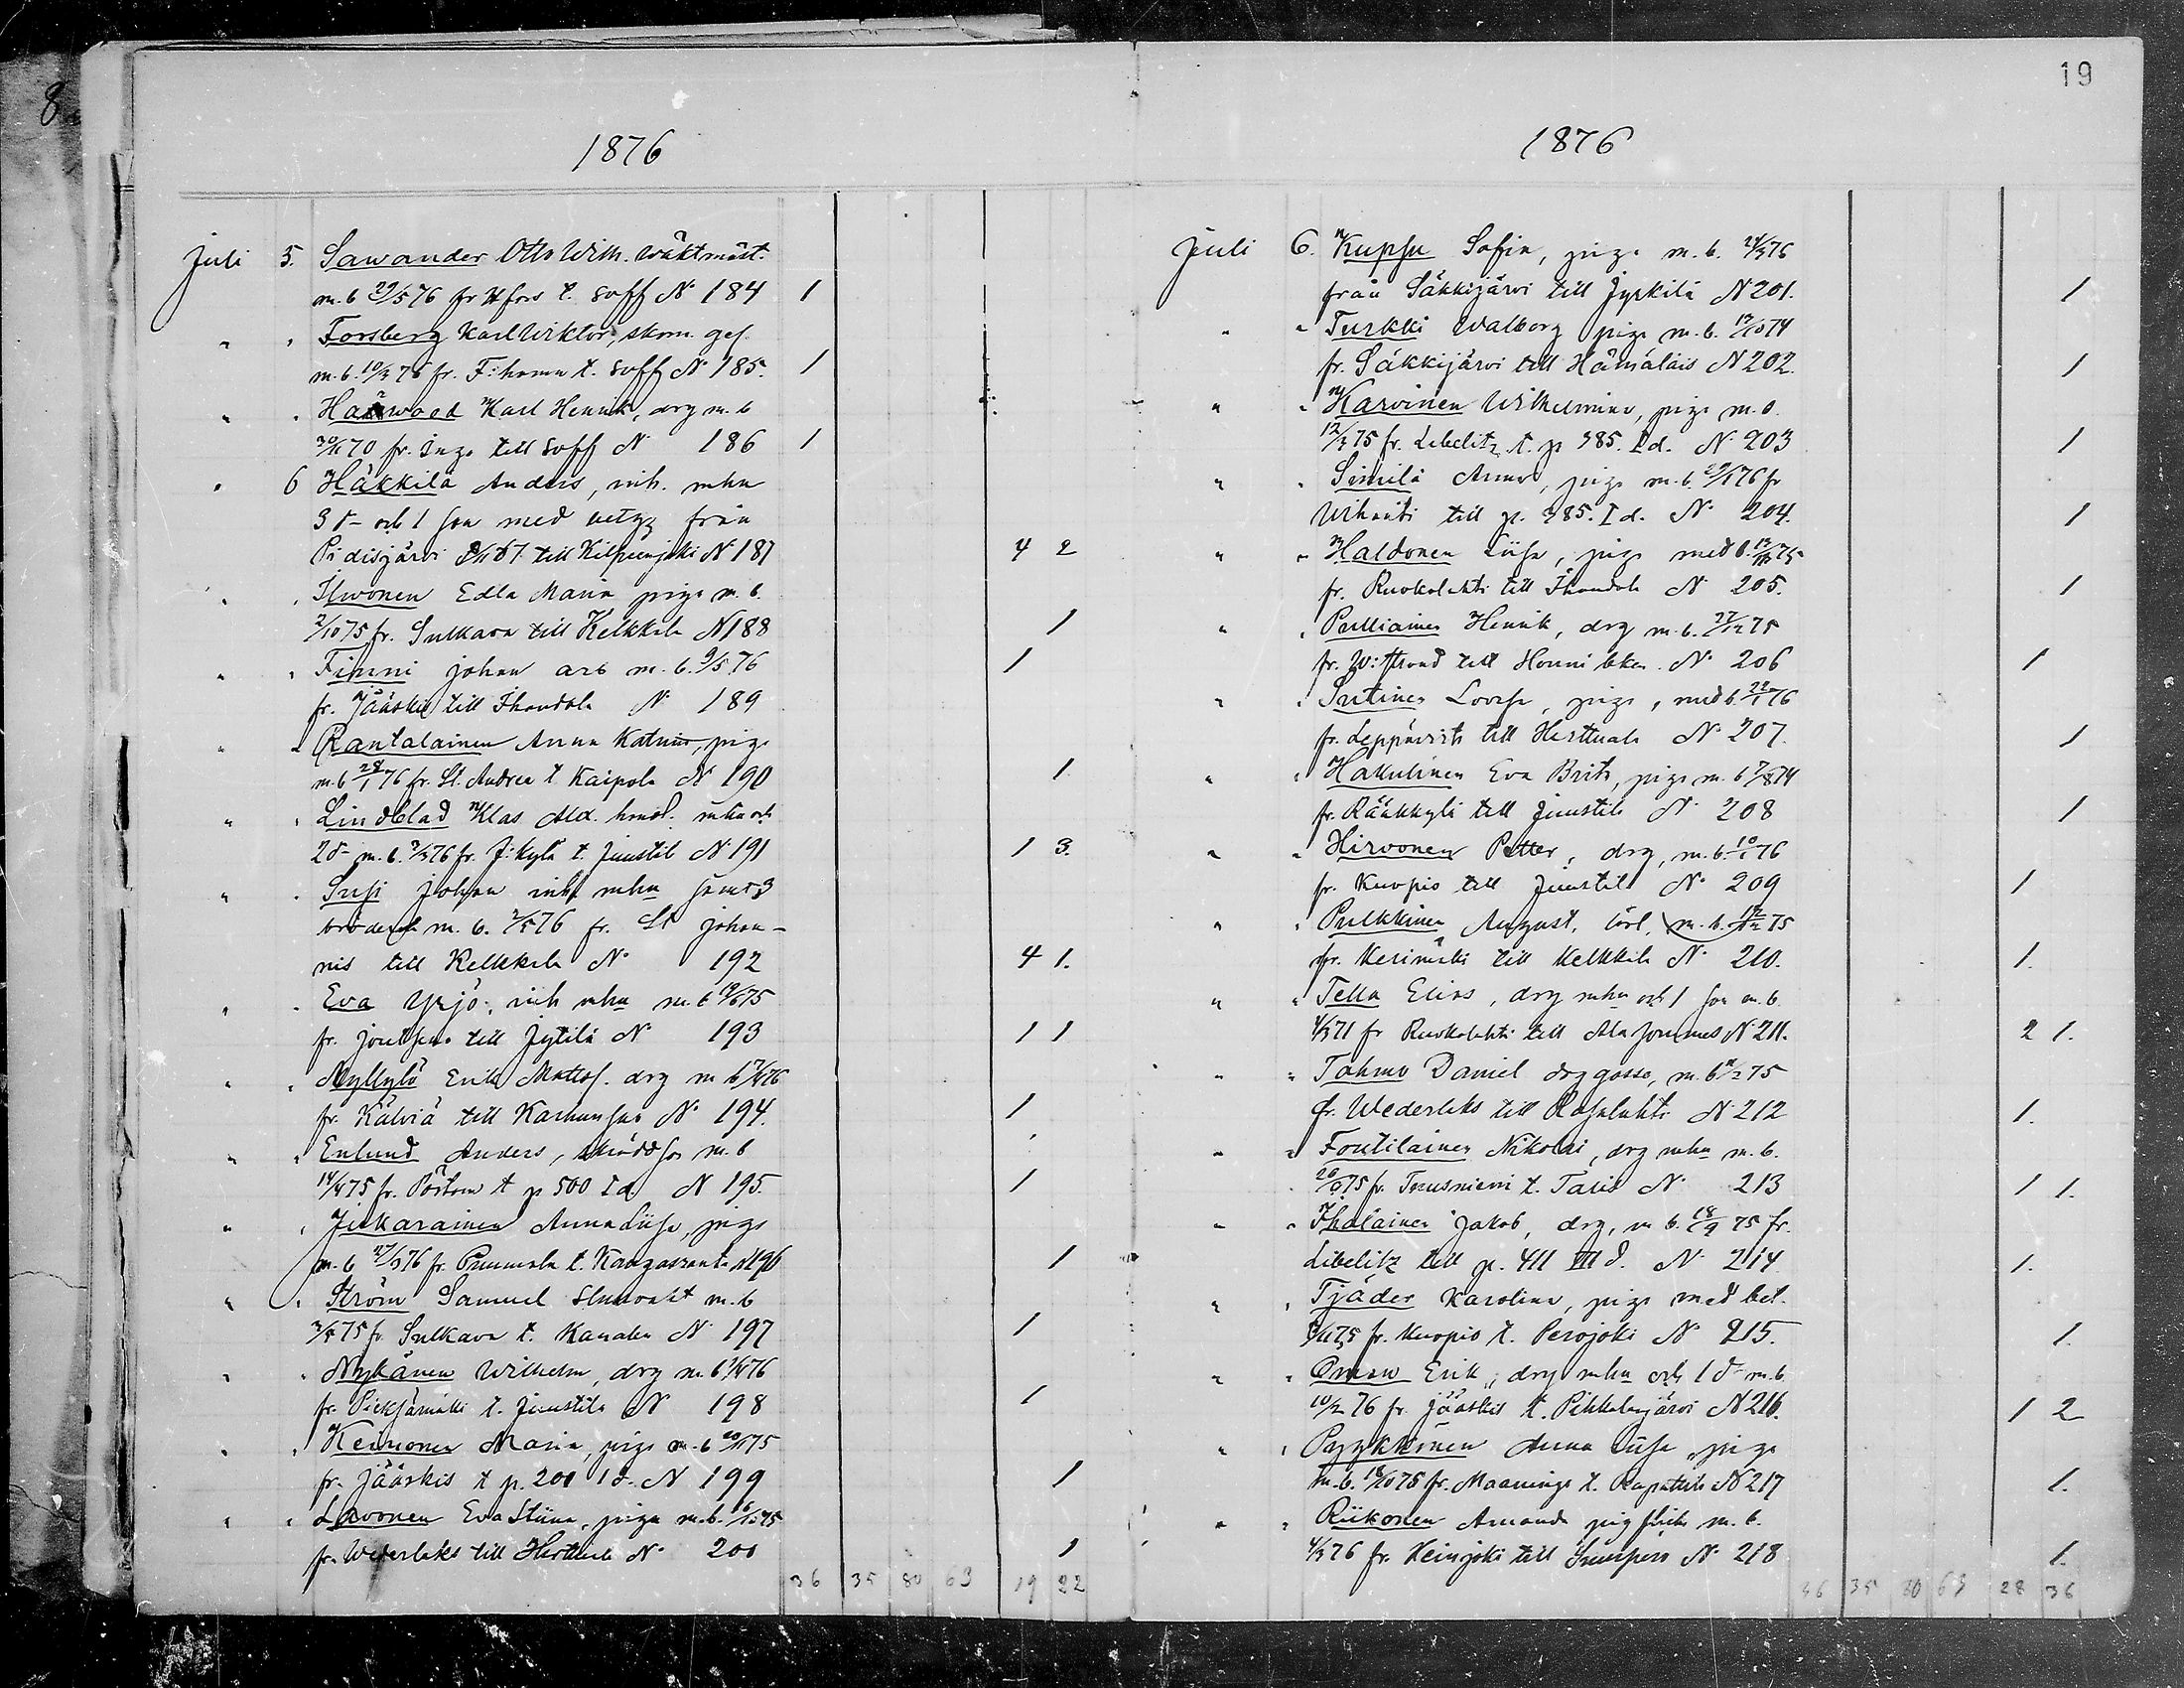 8
19
1876
Juli 5. Sawander Otto Wilh. wäktmäst.
m. b 29/5 76 fr Hfors t. Soff N 184 1
" " Forsberg Karl Wiktor, skom. ges.
m. b. 10/3 76 fr. F:hamn t. Soff N 185. 1
" " Harwood Karl Henrik, drg m. b
70 fr. Inga till Soff N 186 1
" 6 Häkkilä Anders, inh. mhu
3 d– och 1 son med betyg från
Pidisjärvi till Kilpeenjoki N 187 4 2
" " Ilwonen Edla Maria piga m. b.
2/10 75 fr. Sulkava till Kelkkala N 188 1
" " Finni Johan arb m. b. 9/5 76 1
fr. Jääskis till Ihandola N 189
" " Rantalainen Anna Katrina, piga
m. b 28/1 76 fr. St. Andrea t Kaipola N 190 1
" " Lindblad Klas Ald. mhu och
2 d– m. b. 76 fr. J:kylä t. Juustila N 191 1 3.
" " Susi Johan inh mhu samt 3
bröder m. b. 76 fr. St Johan-
nis till Kelkkala N 192 4 1.
" " Eva Yrjö. inh mhu m. b 75
fr. Joutseno till Jytilä N 193 1 1
" " Myllylä Erik Mattss. drg m b 76
fr. Kälviä till Karhusuo N 194. 1
" " Enlund Anders, m. b
14/4 75 fr. Pörtom t p 500 I d N 195. 1
" " Jukarainen Anna Liisa, piga
m. b 76 fr. Puumala t. Kangasranta N 196 1
" " Ström Samuel m. b
75 fr Sulkava t. Kanalen N 197 1
" " Nykänen Wilhelm, drg m. b 76
fr. Pieksämäki t. Juustila N 198 1
" " Keinonen Maria, piga m. b 75
fr. Jääskis t p. 200 I d. N 199 1
" " Lavonen Eva Stiina, piga m. b. 75
fr. Wederlaks till Herttuala N 200 1
36 35 80 63 19 22
1876
Juli 6. Kupsu Sofia, piga m. b. 76
från Säkkijärvi till Jyskilä N 201. 1
" " Turkki Walborg piga m. b. 13/10 74
fr. Säkkijärvi till Hämäläis N 202. 1
" " Karvinen Wilhelmina, piga m. b.
12/3 75 fr. Libelitz t. p 385. I d. N 203 1
" " Similä Anna, piga m. b. 76 fr
Wihanti till p. 385. I d. N 204. 1
" " Haldonen Liisa, piga med b. 75
fr. Ruokolahti till Ihandola N 205. 1
" " Pulliainen Henrik, drg m. b. 27/12 75
fr. W:strand till N 206 1
" " Sutinen Lovisa, piga, med b. 22/1 76
fr. Leppävirta till Herttuala N 207. 1
" " Hakulinen Eva Brita, piga m. b 7/8 74
fr. Rääkkylä till Juustila N 208 1
" " Hirvonen Petter, drg, m. b. 10/1 76
fr. Kuopio till Juustila N 209 1
" " Pulkkinen August, lärl. m. b. 75
fr. Kerimäki till Kelkkala N 210. 1.
" " Tella Elias, drg mhu och 1 son m. b.
71 fr Ruokolahti till Ala Jommes N 211. 2 1.
" " Tahmo Daniel drggosse, m. b 75
fr. Wederlaks till Rasalahti N 212 1.
" " Foutilainen Nikolai, drg mhu m. b.
75 fr. Tuusniemi t. Taris N 213 1 1.
" " Ihalainen Jakob, drg, m b. 18/9 75 fr.
Libelitz till p. 411 III d. N 214 1.
" " Tjäder Karolina, piga med bet.
75 fr. Kuopio t. Perojoki N 215. 1.
" " Oman Erik, drg mhu och 1 d– m. b.
10/2 76 fr Jääskis t. Pihkalanjärvi N 216. 1 2
" " Pyykkönen Anna Liisa, piga
m. b. 18/10 75 fr. Maaninga t. Rapattila N 217 1.
" " Riikonen Amanda m. b.
76 fr. Heinjoki till Suurperö N 218 1.
36 35 80 63 28 36